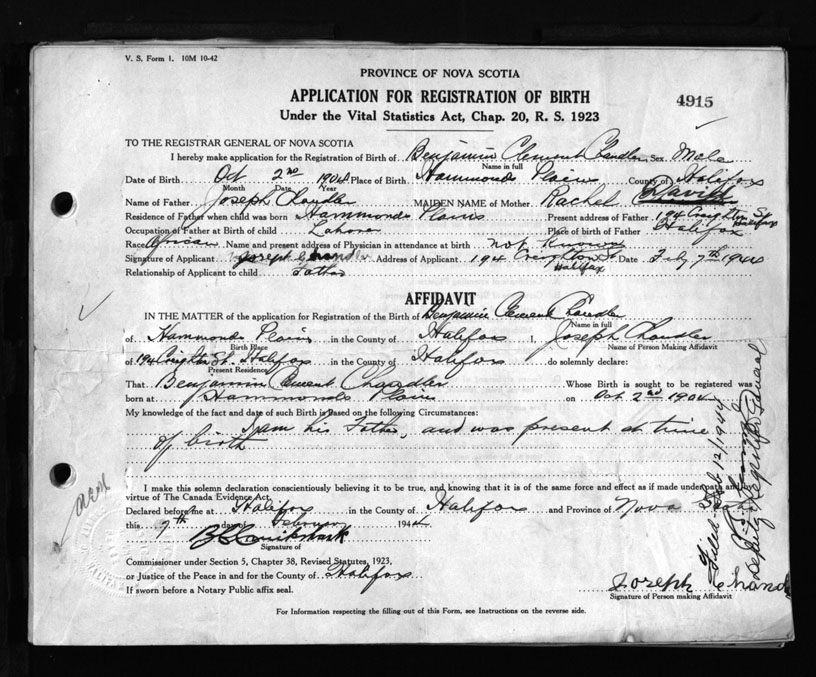 V. S. Form 1. 10M 10-42
PROVINCE OF NOVA SCOTIA
APPLICATION FOR REGISTRATION OF BIRTH
4915
Under the Vital Statistics Act, Chap. 20, R. S. 1923
TO THE REGISTRAR GENERAL OF NOVA SCOTIA
I hereby make application for the Registration of Birth of Benjamin Clement Chandler Sex Male
Name in full
Date of Birth Oct 2nd 1904 Place of Birth Hammonds Plains County of Halifax
Month Date Year
Name of Father Joseph Chandler MAIDEN NAME of Mother Rachel David
Residence of Father when child was born Hammonds Plains Present address of Father 194 Creighton St Halifax
Occupation of Father at Birth of child Laborer Place of birth of Father Halifax
Race African Name and present address of Physician in attendance at birth not Known
Signature of Applicant Joseph Chandler Address of Applicant 194 Creighton St Halifax Date Feby 7th 1944
Relationship of Applicant to child Father
AFFIDAVIT
IN THE MATTER of the application for Registration of the Birth of Benjamin Clement Chandler
Name in full
of Hammonds Plains in the County of Halifax I, Joseph Chandler
Birth Place Name of Person Making Affidavit
of 194 Creighton St. Halifax in the County of Halifax do solemnly declare:
Present Residence
That Benjamin Clement Chandler Whose Birth is sought to be registered was
born at Hammonds Plains on Oct 2nd 1904
My knowledge of the fact and date of such Birth is Based on the following Circumstances:
I am his Father, and was present at time
of birth
I make this solemn declaration conscientiously believing it to be true, and knowing that it is of the same force and effect as if made under oath and by
virtue of The Canada Evidence Act.
Declared before me at Halifax in the County of Halifax and Province of Nova Scotia
this 7th day of February 1944
Signature of
Commissioner under Section 5, Chapter 38, Revised Statutes, 1923,
or Justice of the Peace in and for the County of Halifax
If sworn before a Notary Public affix seal.
Joseph Chandler
Signature of Person making Affidavit
For Information respecting the filling out of this Form, see Instructions on the reverse side.
Filed Feb 12/1944
Deputy Registrar General